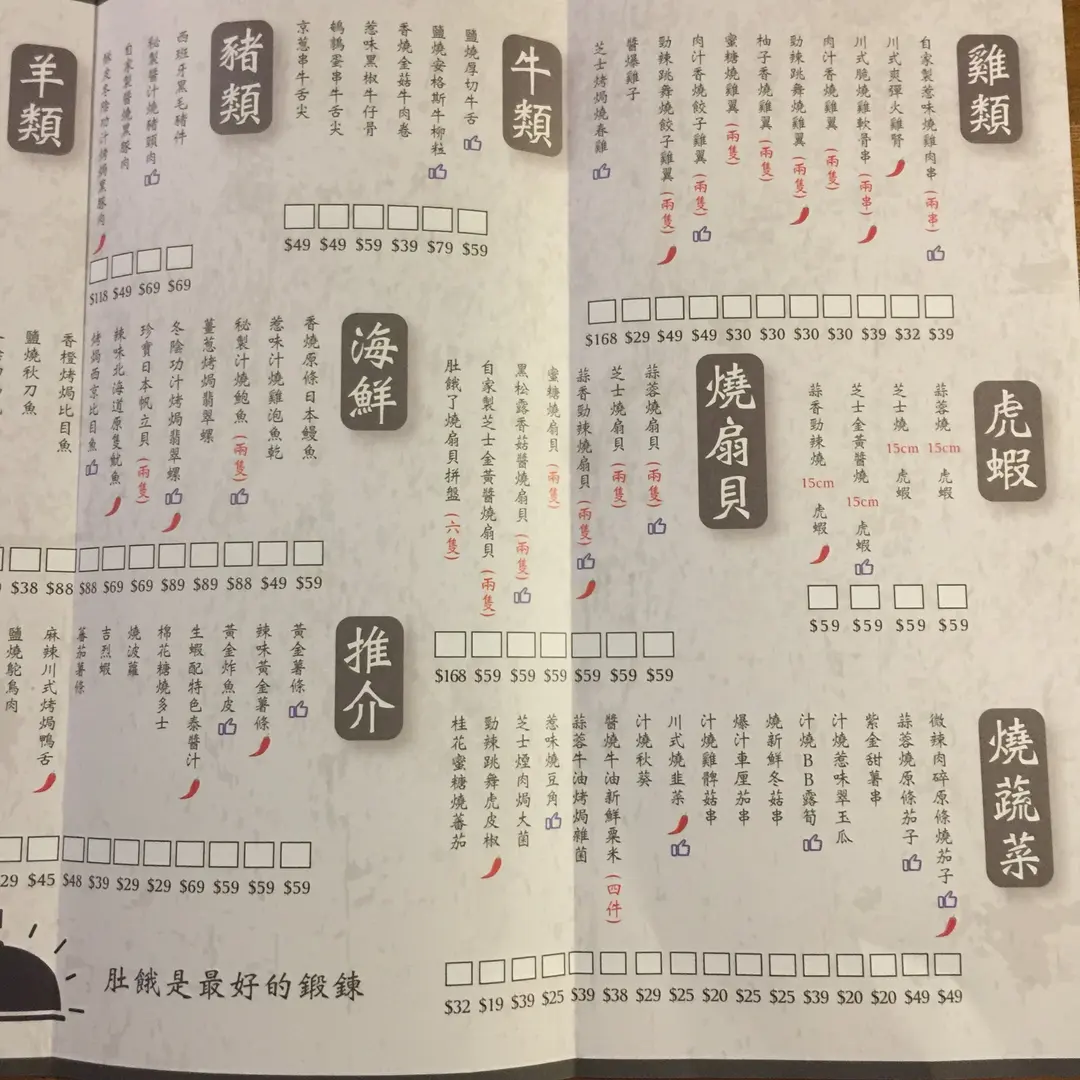 雞類
自家製惹味燒雞肉串(兩串)
川式爽彈火雞腎
川式脆燒雞軟骨串(兩串)
肉汁香燒雞翼(兩隻)
勁辣跳舞燒雞翼(兩隻)
柚子香燒雞翼(兩隻)
蜜糖燒雞翼(兩隻)
肉汁香燒餃子雞翼(兩隻)
勁辣跳舞燒餃子雞翼(兩隻)
醬爆雞子
芝士烤焗燒春雞
$168 $29 $49 $49 $30 $30 $30 $30 $39 $32 $39
牛類
鹽燒厚切牛舌
鹽燒安格斯牛柳粒
香燒金菇牛肉卷
惹味黑椒牛仔骨
鵪鶉蛋串牛舌尖
京蔥串牛舌尖
$49 $49 $59 $39 $79 $59
豬類
西班牙黑毛豬件
秘製醬汁燒豬頸肉
自家製醬燒黑豚肉
$118 $49 $69 $69
羊類
虎蝦
蒜蓉燒15cm虎蝦
芝士燒15cm虎蝦
芝士金黃醬燒15cm虎蝦
蒜香勁辣燒15cm虎蝦
$59 $59 $59 $59
燒扇貝
蒜蓉燒扇貝(兩隻)
芝士燒扇貝(兩隻)
蒜香勁辣燒扇貝(兩隻)
蜜糖燒扇貝(兩隻)
黑松露香菇醬燒扇貝(兩隻)
自家製芝士金黃醬燒扇貝(兩隻)
肚餓了燒扇貝拼盤(六隻)
$168 $59 $59 $59 $59 $59 $59
海鮮
香燒原條日本鰻魚
惹味汁燒雞泡魚乾
秘製汁燒鮑魚(兩隻)
薑蔥烤焗翡翠螺
冬陰功汁烤焗翡翠螺
珍寶日本帆立貝(兩隻)
辣味北海道原隻魷魚
烤焗西京比目魚
香橙烤焗比目魚
鹽燒秋刀魚
$38 $88 $88 $69 $69 $89 $89 $88 $49 $59
燒蔬菜
微辣肉碎原條燒茄子
蒜蓉燒原條茄子
紫金甜薯串
汁燒惹味翠玉瓜
汁燒BB露筍
燒新鮮冬菇串
爆汁車厘茄串
汁燒雞髀菇串
川式燒韭菜
汁燒秋葵
醬燒牛油新鮮粟米(四件)
蒜蓉牛油烤焗雜菌
惹味燒豆角
芝士煙肉焗大菌
勁辣跳舞虎皮椒
桂花蜜糖燒蕃茄
$32 $19 $39 $25 $39 $38 $29 $25 $20 $25 $25 $39 $20 $20 $49 $49
推介
黃金薯條
辣味黃金薯條
黃金炸魚皮
生蝦配特色泰醬汁
棉花糖燒多士
燒波蘿
吉烈蝦
蕃茄薯條
麻辣川式烤焗鴨舌
鹽燒鴕鳥肉
29 $45 $48 $39 $29 $29 $69 $59 $59 $59
肚餓是最好的鍛鍊